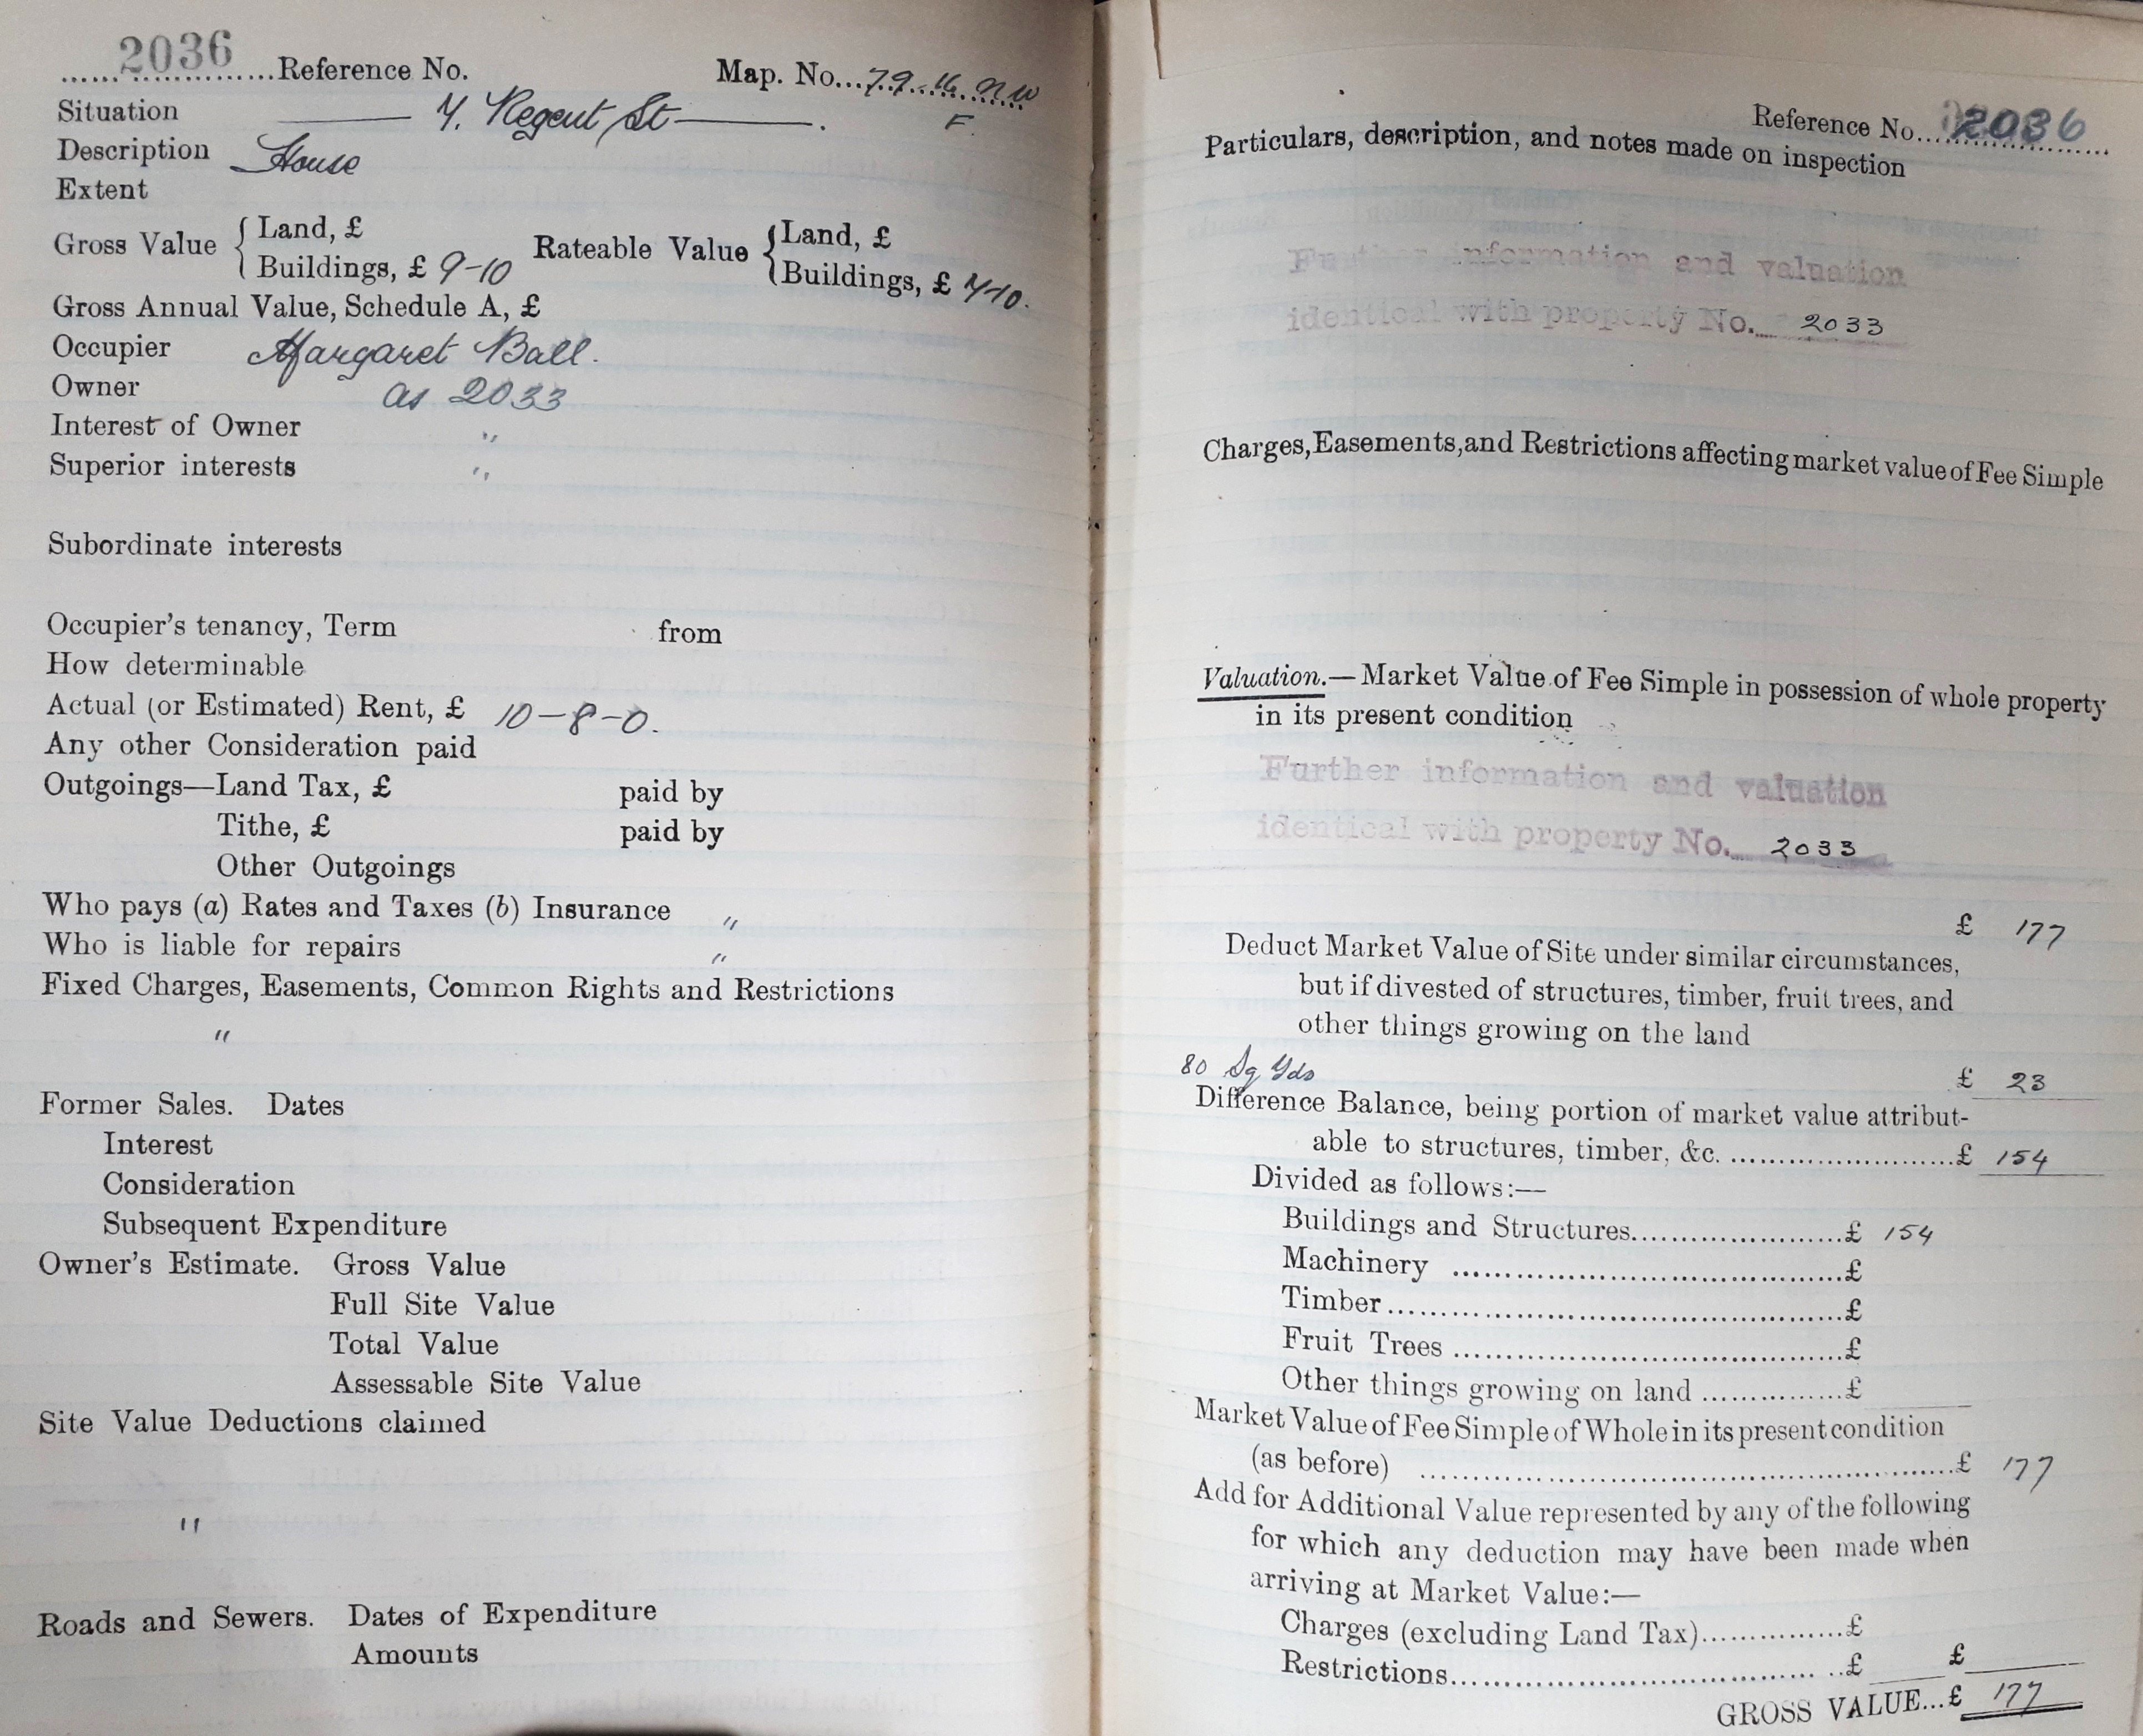 2036 Reference No. Map. No. 79.16.NW
Situation 7. Regent St F.
Description House
Extent
Gross Value { Land, £ Rateable Value { Land, £
Buildings, £ 9-10 Buildings, £ 7-10.
Gross Annual Value, Schedule A, £
Occupier Margaret Ball.
Owner as 2033
Interest of Owner "
Superior interests "
Subordinate interests
Occupier's tenancy, Term from
How determinable
Actual (or Estimated) Rent, £ 10-8-0.
Any other Consideration paid
Outgoings—Land Tax, £ paid by
Tithe, £ paid by
Other Outgoings
Who pays (a) Rates and Taxes (b) Insurance "
Who is liable for repairs "
Fixed Charges, Easements, Common Rights and Restrictions
"
Former Sales. Dates
Interest
Consideration
Subsequent Expenditure
Owner's Estimate. Gross Value
Full Site Value
Total Value
Assessable Site Value
Site Value Deductions claimed
"
Roads and Sewers. Dates of Expenditure
Amounts
Reference No. 2036
Particulars, description, and notes made on inspection
Further information and valuation
identical with property No. 2033
Charges, Easements, and Restrictions affecting market value of Fee Simple
Valuation.—Market Value of Fee Simple in possession of whole property
in its present condition
Further information and valuation
identical with property No. 2033
£ 177
Deduct Market Value of Site under similar circumstances,
but if divested of structures, timber, fruit trees, and
other things growing on the land
80 Sq Yds £ 23
Difference Balance, being portion of market value attribut-
able to structures, timber, &c. £ 154
Divided as follows:—
Buildings and Structures £ 154
Machinery £
Timber £
Fruit Trees £
Other things growing on land £
Market Value of Fee Simple of Whole in its present condition
(as before) £ 177
Add for Additional Value represented by any of the following
for which any deduction may have been made when
arriving at Market Value:—
Charges (excluding Land Tax) £
Restrictions £ £
GROSS VALUE...£ 177